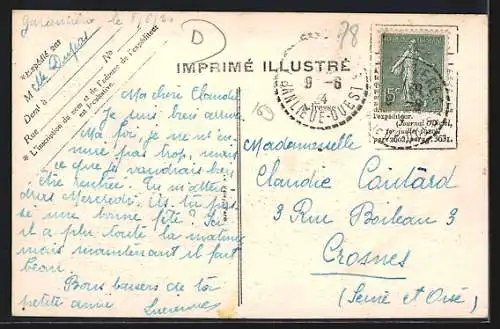 Garancières le 8/6/24
D
78
"Expédié par
M Mlle Dupas
Dent à
Rue No
* L'inscription du nom et de l'adresse de l'expéditeur
est facultative.
IMPRIMÉ ILLUSTRÉ
9-6
BANLIEUE-OUEST
169
Ma chère Claudie
Je suis bien arrivée
Ma foi, je ne m'en
nuie pas trop, mais
ce que je voudrais bien
être rentrée. Tu m'atten
dras Mercredi. As tu pas
sé une bonne fête? Ici
il a plu, toute la matinée
mais maintenant il fait
beau.
Bons baisers de ta
petite amie
Lucienne
15c
l'expéditeur.
(Journal officiel,
1er juillet 1920,
Mademoiselle
Claudie Coutard
3 Rue Boileau 3
Crosnes
(Seine et Oise)